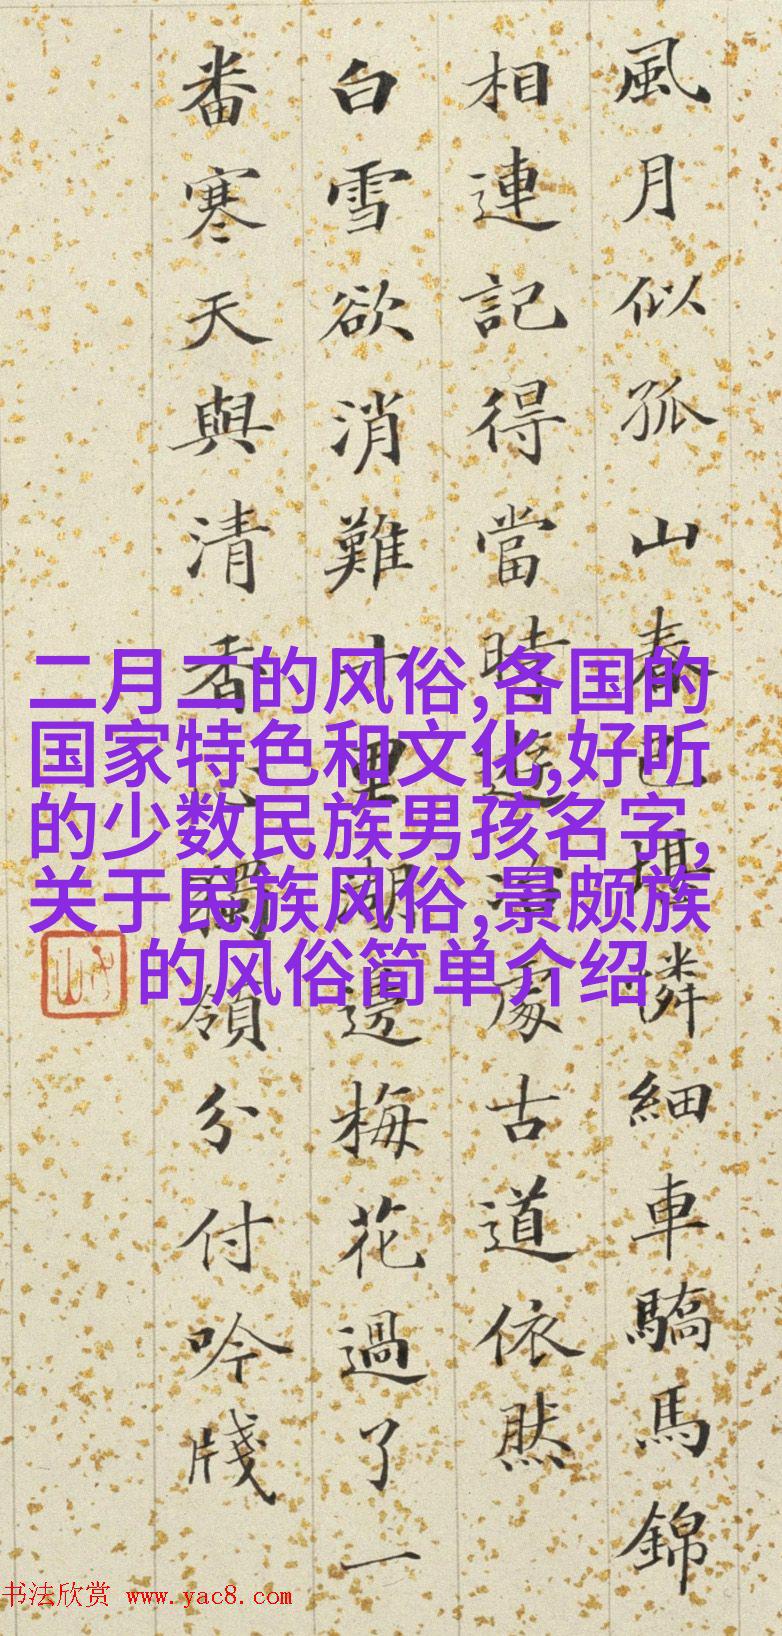 風月似孤山春已堪憐細車驕馬錦
相連記得當時遊冶處古道依然
白雪欲消難十里湖邊梅花過了一
番寒天與清香心獨領分付吟牋
二月二的风俗,各国的
国家特色和文化,好听
的少数民族男孩名字,
关于民族风俗,景颇族
的风俗简单介绍
书法欣赏 www.yac8.com